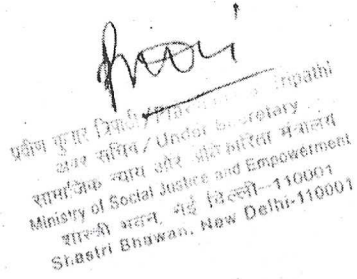 प्रवीण कुमार त्रिपाठी / Tripathi
अवर सचिव / Under Secretary
सामाजिक न्याय और अधिकारिता मंत्रालय
Ministry of Social Justice and Empowerment
शास्त्री भवन, नई दिल्ली-110001
Shastri Bhawan, New Delhi-110001